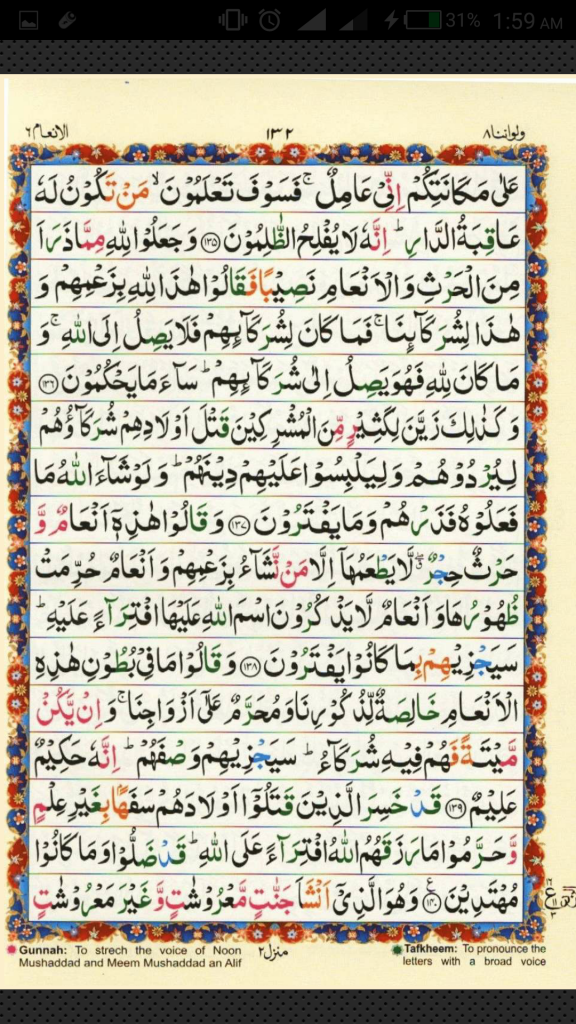 31% 1:59 AM
ولواننا ۸ ۱۳۲ الانعام ٦
عَلٰی مَكَانَتِكُمْ اِنِّیْ عَامِلٌ ۚ فَسَوْفَ تَعْلَمُوْنَ ۙ مَنْ تَكُوْنُ لَهٗ
عَاقِبَةُ الدَّارِ ؕ اِنَّهٗ لَا یُفْلِحُ الظّٰلِمُوْنَ ۝۱۳۵ وَ جَعَلُوْا لِلّٰهِ مِمَّا ذَرَاَ
مِنَ الْحَرْثِ وَ الْاَنْعَامِ نَصِیْبًا فَقَالُوْا هٰذَا لِلّٰهِ بِزَعْمِهِمْ وَ
هٰذَا لِشُرَكَآىِٕنَا ۚ فَمَا كَانَ لِشُرَكَآىِٕهِمْ فَلَا یَصِلُ اِلَی اللّٰهِ ۚ وَ
مَا كَانَ لِلّٰهِ فَهُوَ یَصِلُ اِلٰی شُرَكَآىِٕهِمْ ؕ سَآءَ مَا یَحْكُمُوْنَ ۝۱۳۶
وَ كَذٰلِكَ زَیَّنَ لِكَثِیْرٍ مِّنَ الْمُشْرِكِیْنَ قَتْلَ اَوْلَادِهِمْ شُرَكَآؤُهُمْ
لِیُرْدُوْهُمْ وَ لِیَلْبِسُوْا عَلَیْهِمْ دِیْنَهُمْ ؕ وَ لَوْ شَآءَ اللّٰهُ مَا
فَعَلُوْهُ فَذَرْهُمْ وَ مَا یَفْتَرُوْنَ ۝۱۳۷ وَ قَالُوْا هٰذِهٖۤ اَنْعَامٌ وَّ
حَرْثٌ حِجْرٌ ۖۗ لَّا یَطْعَمُهَاۤ اِلَّا مَنْ نَّشَآءُ بِزَعْمِهِمْ وَ اَنْعَامٌ حُرِّمَتْ
ظُهُوْرُهَا وَ اَنْعَامٌ لَّا یَذْكُرُوْنَ اسْمَ اللّٰهِ عَلَیْهَا افْتِرَآءً عَلَیْهِ ؕ
سَیَجْزِیْهِمْ بِمَا كَانُوْا یَفْتَرُوْنَ ۝۱۳۸ وَ قَالُوْا مَا فِیْ بُطُوْنِ هٰذِهِ
الْاَنْعَامِ خَالِصَةٌ لِّذُكُوْرِنَا وَ مُحَرَّمٌ عَلٰۤی اَزْوَاجِنَا ۚ وَ اِنْ یَّكُنْ
مَّیْتَةً فَهُمْ فِیْهِ شُرَكَآءُ ؕ سَیَجْزِیْهِمْ وَصْفَهُمْ ؕ اِنَّهٗ حَكِیْمٌ
عَلِیْمٌ ۝۱۳۹ قَدْ خَسِرَ الَّذِیْنَ قَتَلُوْۤا اَوْلَادَهُمْ سَفَهًۢا بِغَیْرِ عِلْمٍ
وَّ حَرَّمُوْا مَا رَزَقَهُمُ اللّٰهُ افْتِرَآءً عَلَی اللّٰهِ ؕ قَدْ ضَلُّوْا وَ مَا كَانُوْا
مُهْتَدِیْنَ ۝۱۴۰ وَ هُوَ الَّذِیْۤ اَنْشَاَ جَنّٰتٍ مَّعْرُوْشٰتٍ وَّ غَیْرَ مَعْرُوْشٰتٍ
Gunnah: To strech the voice of Noon
Mushaddad and Meem Mushaddad an Alif
منزل ۲
Tafkheem: To pronounce the
letters with a broad voice